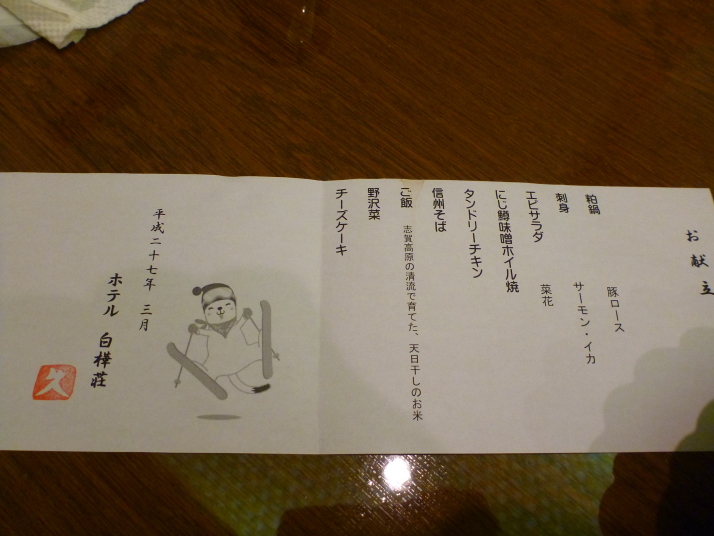 お献立
粕鍋 豚ロース
刺身 サーモン・イカ
エビサラダ 菜花
にじ鱒味噌ホイル焼
タンドリーチキン
信州そば
ご飯 志賀高原の清流で育てた、天日干しのお米
野沢菜
チーズケーキ
平成二十七年 三月
ホテル 白樺荘